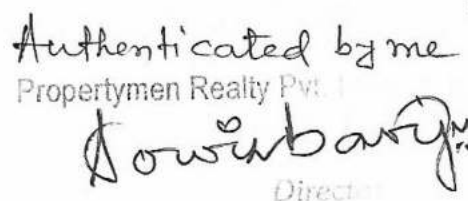 Authenticated by me
Propertymen Realty Pvt.
Director